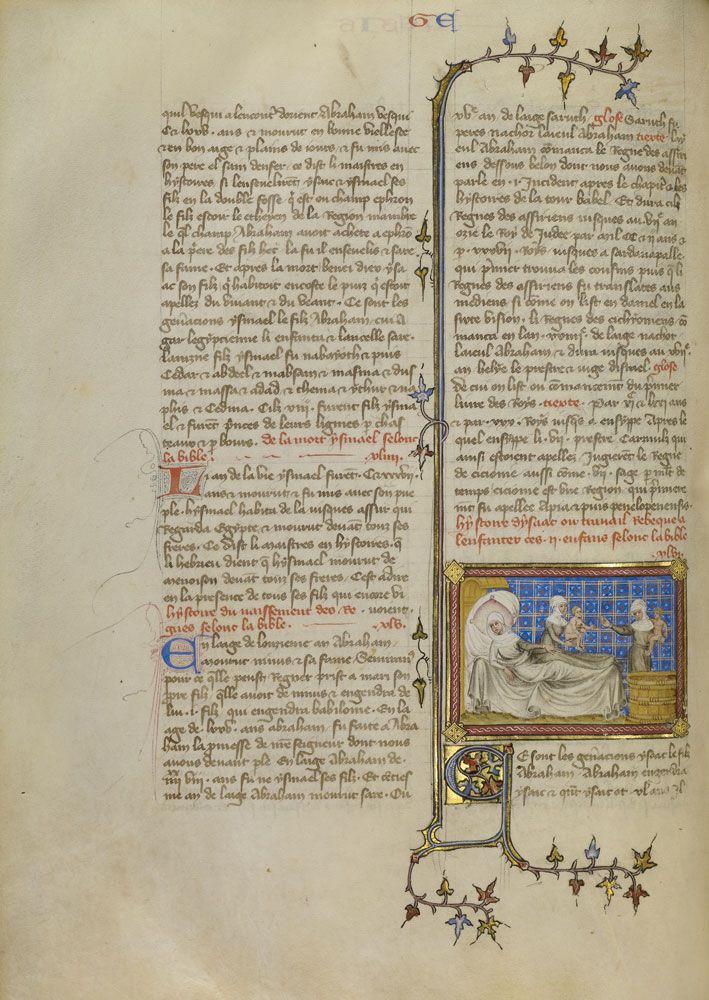 GE
quil vesqui a lencont' dovent Abraham vesqui
ans et mourut en bonne viellesce
et en bon aige et plains de iours et fu mis avec
son pere el sain denfer ce dist li maistres en
hystoires si lensevelirent ysaac et ysmael ses
filz en la double fosse q est ou champ ephron
le filz de la Region mambre
le ql champ Abraham avoit achete a ephro
a la des filz heth la fu il ensevelis et sare
sa fame. Et apres la mort benei diex ysa
ac son filz q habitoit encoste le puiz q estoit
apellez du vivant et du veant. Ce sont les
gnacions ysmael le filz Abraham, cui A
gar legypcienne li enfanta et lancelle sare.
Lainzne filz ysmael fu nabayoth et puis
Cedar et abdeel et mabsam et masma et dus
ma et massa et adad et thema et ythur et na
phis et Cedma. Cilz furent filz ysma
el et furent pnces de leurs lignies p chas
teaux et p bours. de la mort ysmael selonc
la bible.
Li an de la vie ysmael furet. C et xxxvii
ans et mourut et fu mis avec son pue
ple. hysmael habita de la iusques assur qui
Regarda Egypte, et mourut devat touz ses
freres. Ce dist li maistres en hystoires. q
li hebrieu dient q hysmael mourut de
menoison devat tous ses freres. Cest a dire
en la presence de tous ses filz qui encore vi
hystoire du naissement des Re. voient.
gnes selonc la bible. xlv.
En laige de Abraham
mourut ninus et sa fame Semiramis
pour ce qlle peust Regner prist a mari son
ppre filz, qlle avoit de ninus et engendra de
lui .i. filz qui engendra babiloine. En la
age de lxxv. ans abraham, fu faite a Abra
ham la pmesse de nre seigneur dont nous
avons devant ple En laige Abraham de
ans fu ne ysmael ses filz. Et
me an de laige Abraham mourut sare. Ou
an de laige saruth glose Saruth fu
peres nachor laieul Abraham texte lay
eul Abraham comanca le Regne des assiri
ens dessous belon dont nous avons devat
parle en .i. Incident apres le chapit'
hystoires de la tour babel. Et dura cilz
Regnes des assiriens iusques au vii. an
ozie le Roy de Iudee par .mil C et ii ans et
p. xxxvii. Roys iusques a sardanapalle.
qui pmiet trouva les constins puis q li
Regnes des assiriens fu translates aus
mediens si come on list en daniel en la
sixte vision. li Regnes des cichyoniens co
manca en lan de laige nachor
laieul Abraham et dura iusques au
an helye le prestre et iuge disrael glose
de cui on list ou comancemt du pmier
livre des Roys. texte. Par vi et lxxi ans
et par .xxv. Roys iusqs a zeusype Apres le
quel zeusype li. vii. prestre Carmilz qui
ainsi estoient apellez Iugierent le Regne
de cicione aussi come .vii. sage p mlt de
temps cicione est une Region qui pmiere
mt fu apellee Apia et puis penelopensis.
hystoire dysaac ou travail Rebeque a
lenfanter ces .ii. enfans selonc la bible
xlvi.
Ce sont les gnacions ysaac le filz
Abraham Abraham engendra
ysaac et qnt ysaac ot .xl. ans il